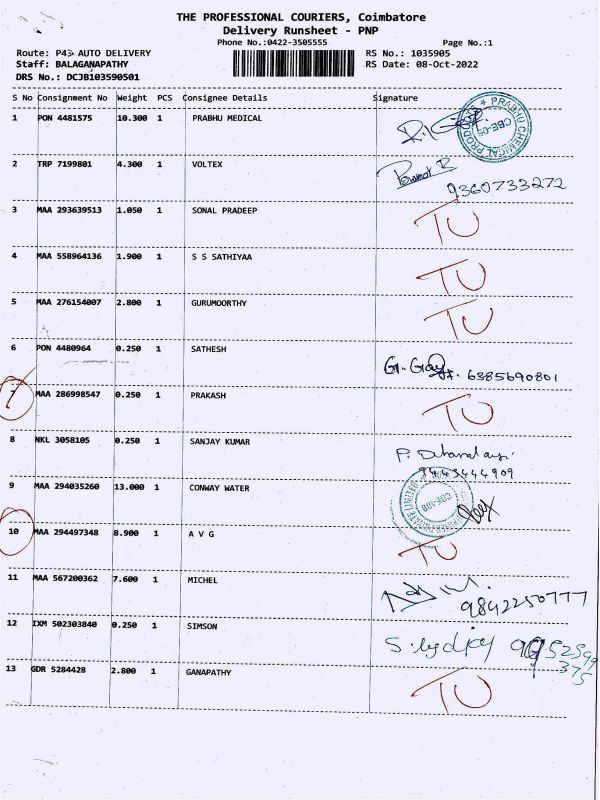 THE PROFESSIONAL COURIERS, Coimbatore
Delivery Runsheet - PNP
Phone No.:0422-3505555 Page No.:1
Route: P43 AUTO DELIVERY RS No.: 1035905
Staff: BALAGANAPATHY RS Date: 08-Oct-2022
DRS No.: DCJB103590501
S No Consignment No Weight PCS Consignee Details Signature
1 PON 4481575 10.300 1 PRABHU MEDICAL
PRABHU CHEMICAL PRODUCTS CBE-05
2 TRP 7199801 4.300 1 VOLTEX
9360733272
3 MAA 293639513 1.050 1 SONAL PRADEEP TU
4 MAA 558964136 1.900 1 S S SATHIYAA TU
5 MAA 276154007 2.800 1 GURUMOORTHY TU
6 PON 4480964 0.250 1 SATHESH
6385690801
7 MAA 286998547 0.250 1 PRAKASH TU
8 NKL 3058105 0.250 1 SANJAY KUMAR
9443444909
9 MAA 294035260 13.000 1 CONWAY WATER
PRIVATE LIMITED
10 MAA 294497348 8.900 1 A V G TU
11 MAA 567200362 7.600 1 MICHEL
9842250777
12 IXM 502303840 0.250 1 SIMSON
375
13 GDR 5284428 2.800 1 GANAPATHY TU